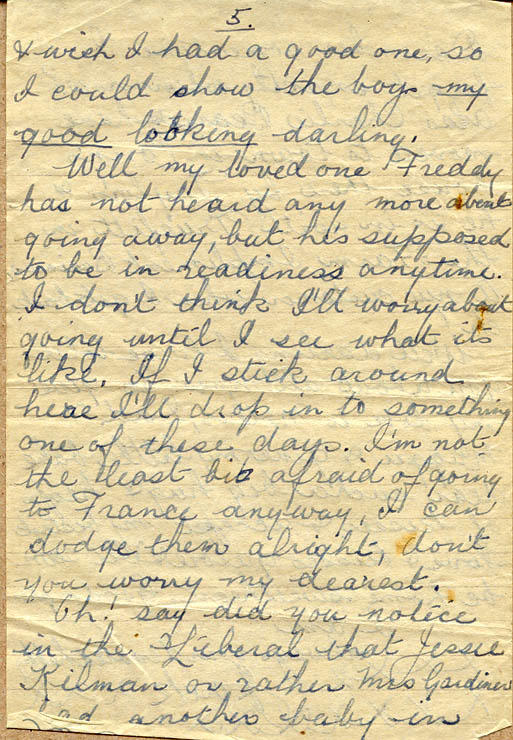 5.
& wish I had a good one, so
I could show the boys my
good looking darling.
Well my loved one Freddy
has not heard any more about
going away, but he's supposed
to be in readiness anytime.
I don't think I'll worry about
going until I see what its
like. If I stick around
here I'll drop in to something
one of these days. I'm not
the least bit afraid of going
to France anyway, I can
dodge them alright, don't
you worry my dearest.
Oh! say did you notice
in the Liberal that Jessie
Kilman or rather Mrs Gardiner
had another baby in